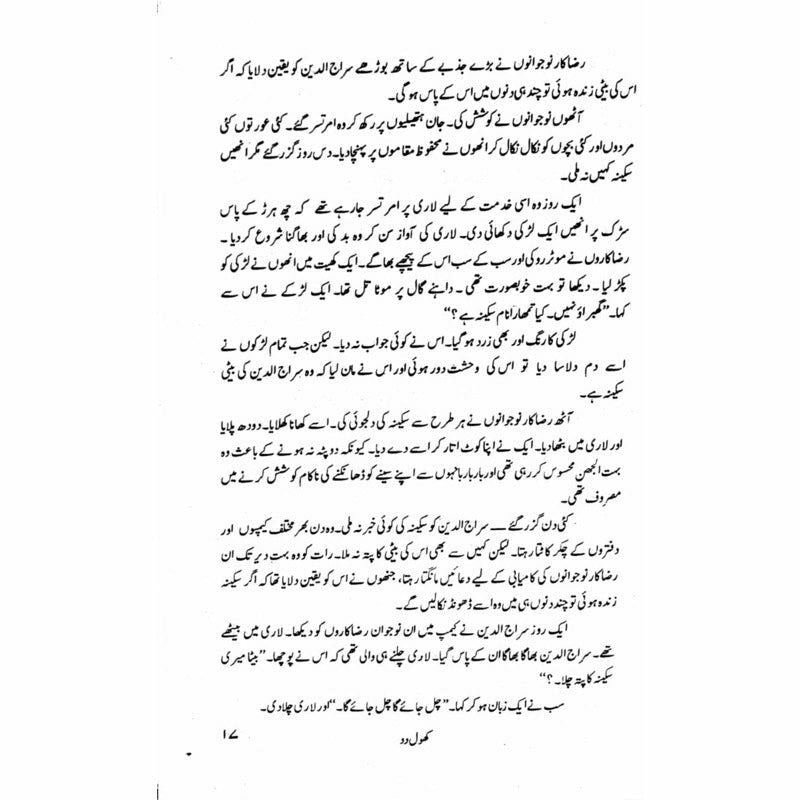 رضاکار نوجوانوں نے بڑے جذبے کے ساتھ بوڑھے سراج الدین کو یقین دلایا کہ اگر
اس کی بیٹی زندہ ہوئی تو چند ہی دنوں میں اس کے پاس ہو گی۔
آٹھوں نوجوانوں نے کوشش کی۔ جان ہتھیلیوں پر رکھ کر وہ امرتسر گئے۔ کئی عورتوں کئی
مردوں اور کئی بچوں کو نکال نکال کر انھوں نے محفوظ مقاموں پر پہنچا دیا۔ دس روز گزر گئے مگر انھیں
سکینہ کہیں نہ ملی۔
ایک روز وہ اسی خدمت کے لیے لاری پر امرتسر جا رہے تھے کہ چھ ہرڑ کے پاس
سڑک پر انھیں ایک لڑکی دکھائی دی۔ لاری کی آواز سن کر وہ بدکی اور بھاگنا شروع کر دیا۔
رضاکاروں نے موٹر روکی اور سب کے سب اس کے پیچھے بھاگے۔ ایک کھیت میں انھوں نے لڑکی کو
پکڑ لیا۔ دیکھا تو بہت خوبصورت تھی۔ داہنے گال پر موٹا تل تھا۔ ایک لڑکے نے اس سے
کہا۔ ”گھبراؤ نہیں۔ کیا تمھارا نام سکینہ ہے؟“
لڑکی کا رنگ اور بھی زرد ہو گیا۔ اس نے کوئی جواب نہ دیا۔ لیکن جب تمام لڑکوں نے
اسے دم دلاسا دیا تو اس کی وحشت دور ہوئی اور اس نے مان لیا کہ وہ سراج الدین کی بیٹی
سکینہ ہے۔
آٹھ رضاکار نوجوانوں نے ہر طرح سے سکینہ کی دلجوئی کی۔ اسے کھانا کھلایا۔ دودھ پلایا
اور لاری میں بٹھا دیا۔ ایک نے اپنا کوٹ اتار کر اسے دے دیا۔ کیونکہ دوپٹہ نہ ہونے کے باعث وہ
بہت الجھن محسوس کر رہی تھی اور بار بار بانہوں سے اپنے سینے کو ڈھانکنے کی ناکام کوشش کرنے میں
مصروف تھی۔
کئی دن گزر گئے — سراج الدین کو سکینہ کی کوئی خبر نہ ملی۔ وہ دن بھر مختلف کیمپوں اور
دفتروں کے چکر کاٹتا رہتا۔ لیکن کہیں سے بھی اس کی بیٹی کا پتہ نہ ملا۔ رات کو وہ بہت دیر تک ان
رضاکار نوجوانوں کی کامیابی کے لیے دعائیں مانگتا رہتا، جنھوں نے اس کو یقین دلایا تھا کہ اگر سکینہ
زندہ ہوئی تو چند دنوں ہی میں وہ اسے ڈھونڈ نکالیں گے۔
ایک روز سراج الدین نے کیمپ میں ان نوجوان رضاکاروں کو دیکھا۔ لاری میں بیٹھے
تھے۔ سراج الدین بھاگا بھاگا ان کے پاس گیا۔ لاری چلنے ہی والی تھی کہ اس نے پوچھا۔ ”بیٹا میری
سکینہ کا پتہ چلا۔؟“
سب نے ایک زبان ہو کر کہا۔ ”چل جائے گا چل جائے گا۔“ اور لاری چلا دی۔
کھول دو
۱۷